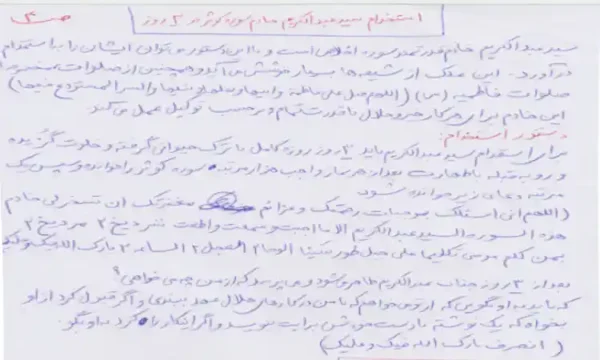 استخدام سید عبدالکریم خادم سوره کوثر در ۳ روز
سید عبدالکریم خادم قدرتمند سوره است و با این دستور می توان ایشان را به استخدام
درآورد. این ملک از شیعه ها بسیار خوشش می آید و همچنین از صلوات مخصوصا
صلوات فاطمیه (س) (اللهم صل علی فاطمة و ابیها و بعلها و بنیها والسر المستودع فیها)
این خادم برای هر کار خیر و حلال با قدرت تمام و برحسب توکیل عمل می کند.
دستور استخدام:
برای استخدام سید عبدالکریم باید ۳ روز روزه کامل با ترک حیوانی گرفته و خلوت گزیده
و رو به قبله با طهارت بعد از هر نماز واجب هزار مرتبه سوره کوثر را خوانده و سپس یک
مرتبه دعای زیر خوانده شود
(اللهم انی اسئلک بموجبات رحمتک و عزائم مغفرتک ان تسخرلی خادم
هذه السوره السید عبدالکریم الا ما اجبت و سمعت و اطعت
بمن کلم موسی تکلیما علی جبل طور سینا الوحا ۲ العجل ۲ الساعه ۲ بارک الله فیک و علیک
بعد از ۳ روز جناب عبدالکریم ظاهر می شود و می پرسد که از من چه می خواهی؟
که باید به او بگویی که از تو می خواهم که با من در کارهای حلال عهد ببندی و اگر قبول کرد از او
بخواه که یک نوشته با دست خودش برایت بنویسد و اگر اینکار را کرد به او بگو:
(انصرف بارک الله فیک و علیک)